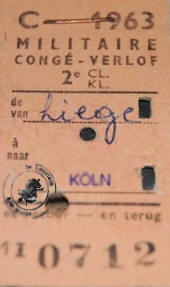 C 1963
MILITAIRE
CONGÉ-VERLOF
2e CL.
KL.
de
van Liege
à
naar
KÖLN
en terug
0712